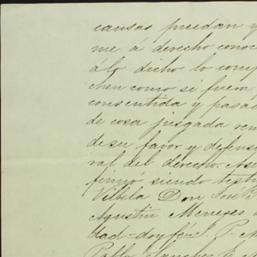 causas puedan y
me á derecho conoc
á lo dicho lo comp
chen como si fuera
consentida y pasad
de cosa juzgada ren
de su favor y defens
ral del derecho. Así
firmó siendo testi
Don José
Agustin Meneses
dad = doy fé =
Pablo Sanchez